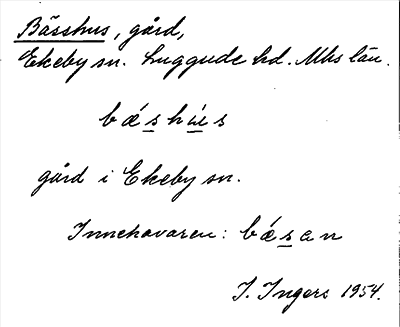 Bässhus, gård,
Ekeby sn. Luggude hd. Mhs län.
bǽshú̀s
gård i Ekeby sn.
Innehavaren: bǽsan
I. Ingers 1954.